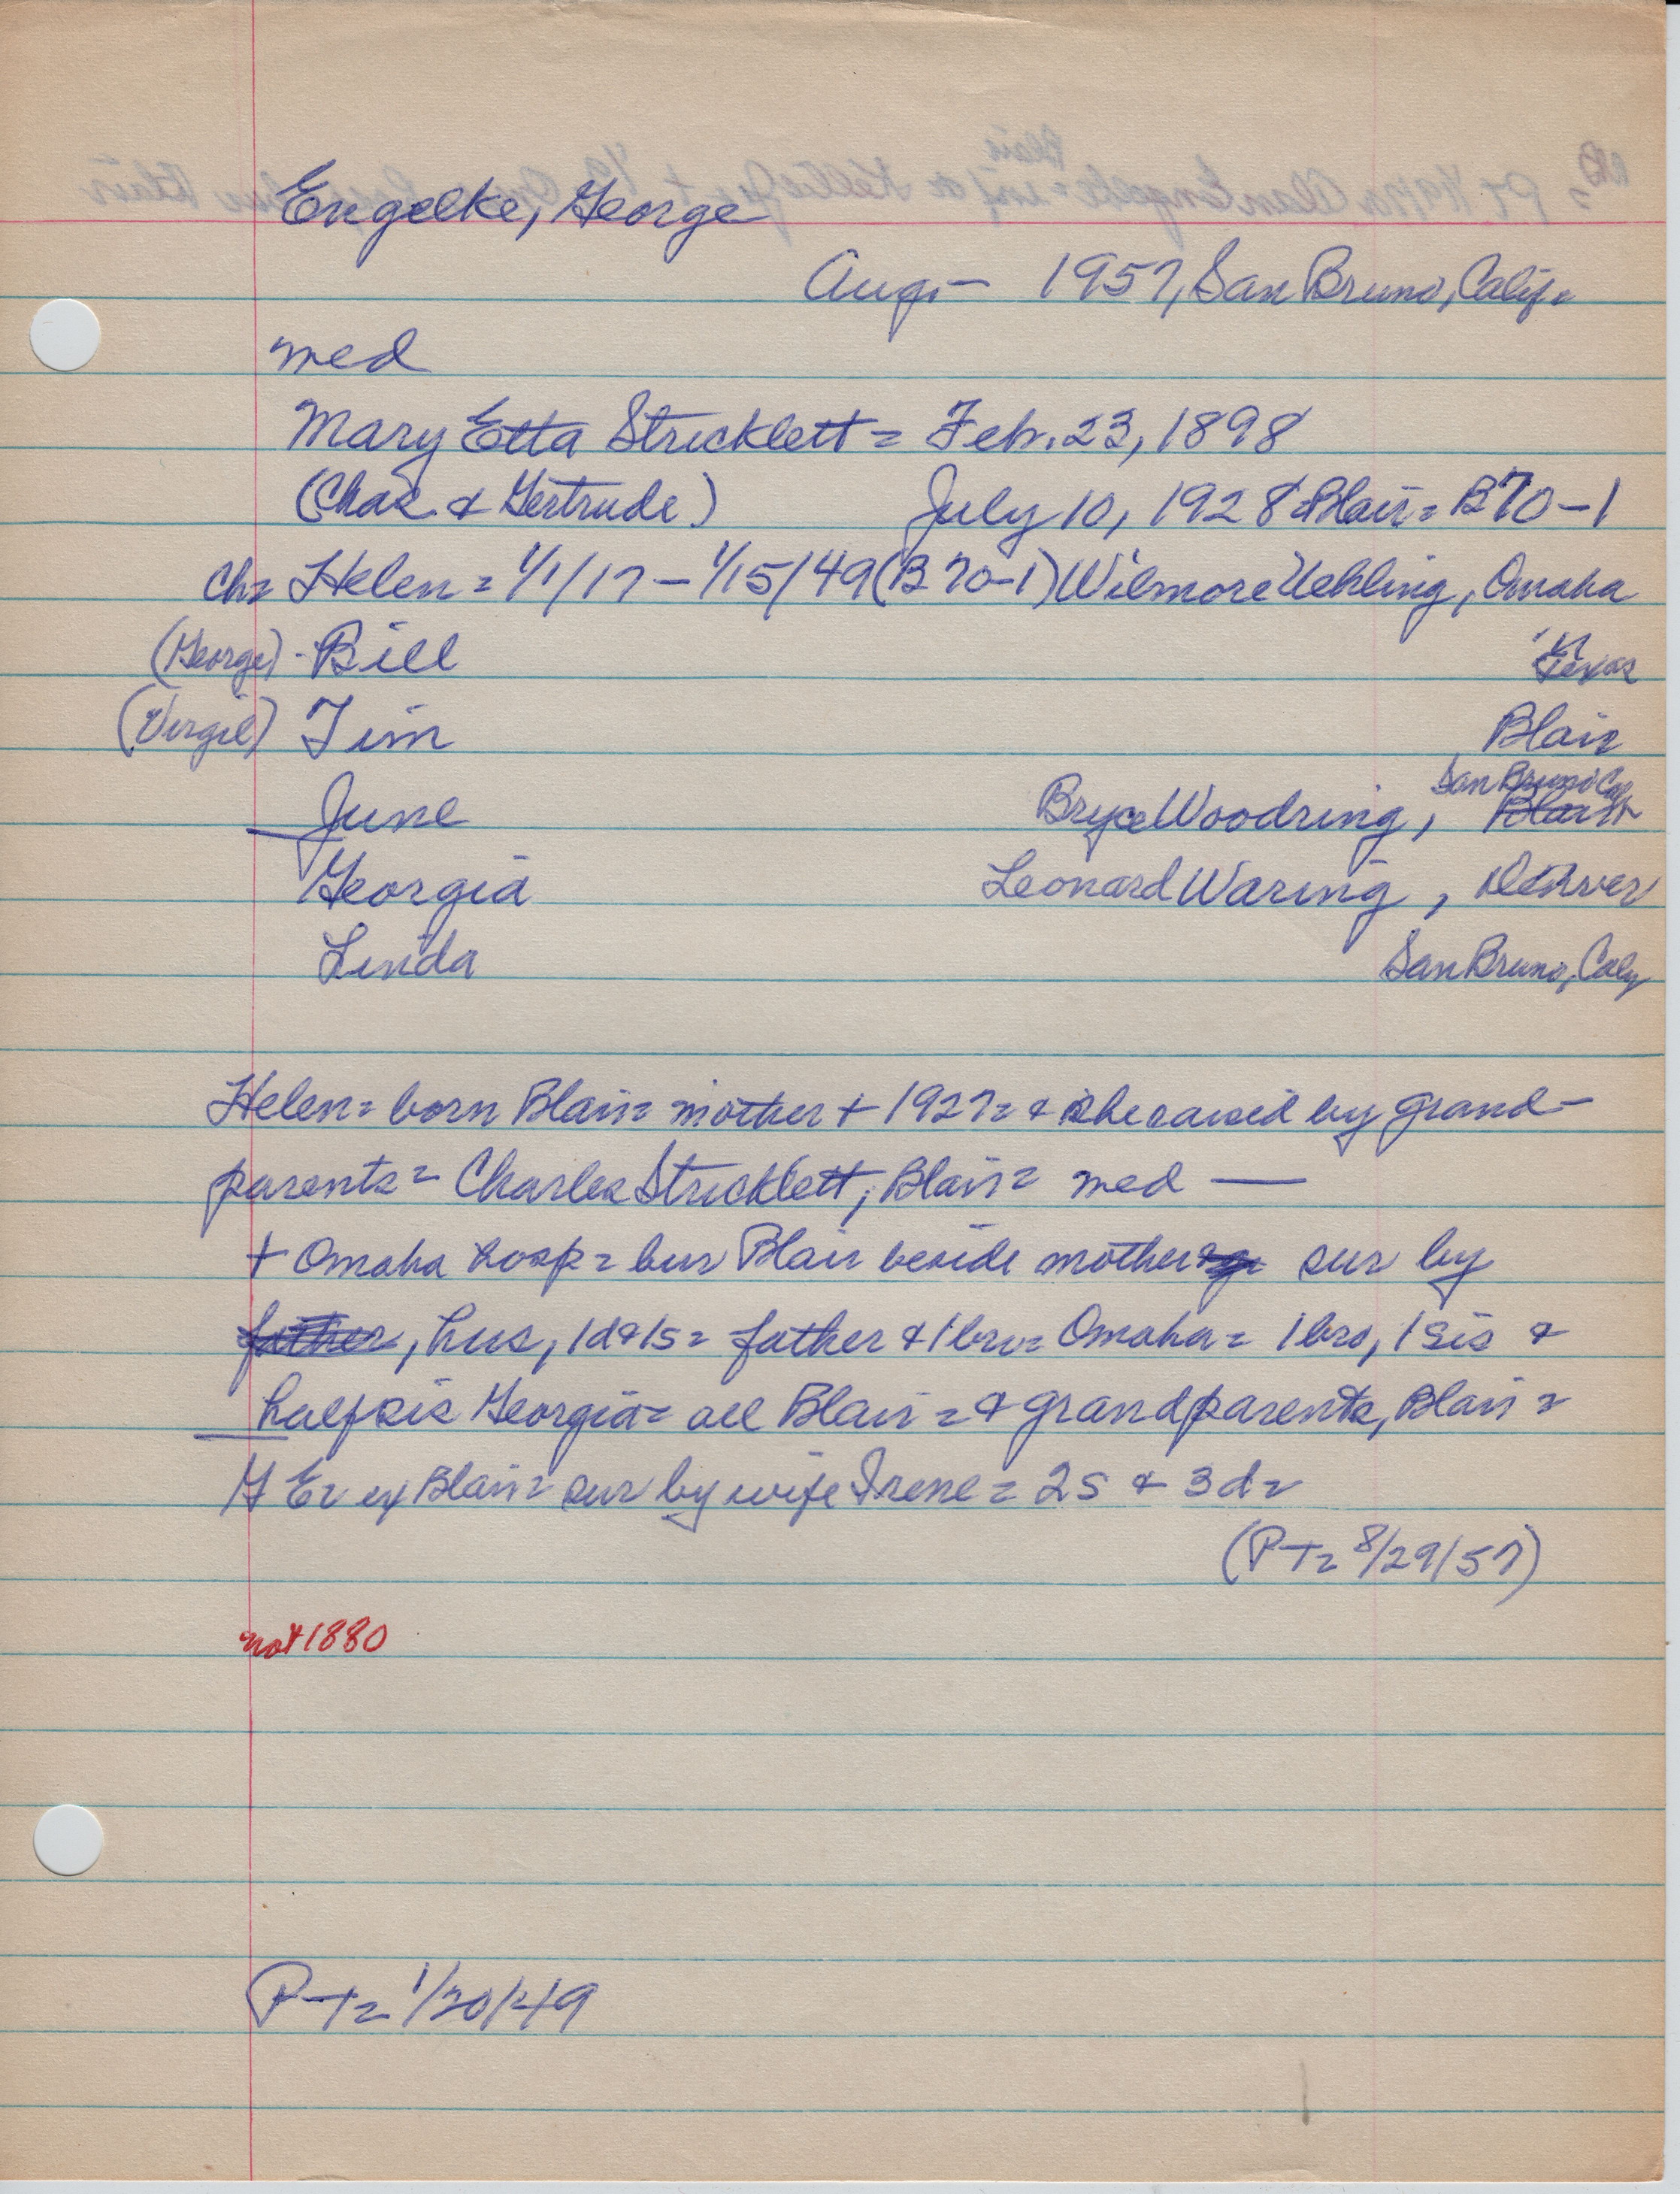 Engelke, George
Aug. - 1957, San Bruno, Calif =
med
Mary Etta Stricklett = Feb. 23, 1898
(Chas. & Gertrude) July 10, 1928 = Blair = B70-1
Ch = Helen = 1/1/17 - 1/15/49 (B 70-1) Wilmore Uehling, Omaha
(George) - Bill Texas
(Virgil) Tim Blair
San Bruno Cal
June Bryce Woodring, Blair
Georgia Leonard Waring, Denver
Linda San Bruno, Calif
Helen = born Blair = mother + 1927 = & she raised by grand-
parents = Charles Stricklett, Blair = med —
+ Omaha hosp = bur Blair beside mother sur by
father, hus, 1d & 1s = father & 1 bro = Omaha = 1 bro, 1 sis &
half sis Georgia = all Blair = & grandparents, Blair =
G E = ex Blair = sur by wife Irene = 2s & 3d =
(PT = 8/29/57)
not 1880
PT = 1/20/49